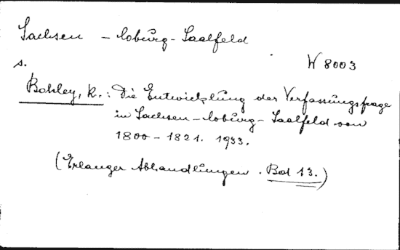 Sachsen - Coburg-Saalfeld
W 8003
s.
Bohley, K.: Die Entwicklung der Verfassungsfrage
in Sachsen-Coburg-Saalfeld von
1800-1821. 1933.
(Erlanger Abhandlungen. Bd 13.)